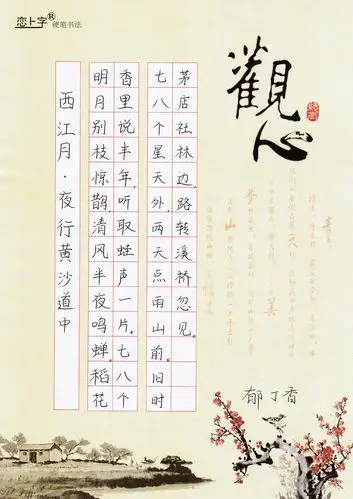 恋上字® 硬笔书法
觀心
西江月·夜行黄沙道中
明月别枝惊鹊清风半夜鸣蝉。稻花
香里说丰年,听取蛙声一片。七八个
七八个星天外,两天点雨山前。旧时
茅店社林边,路转溪桥忽见。
郁丁香